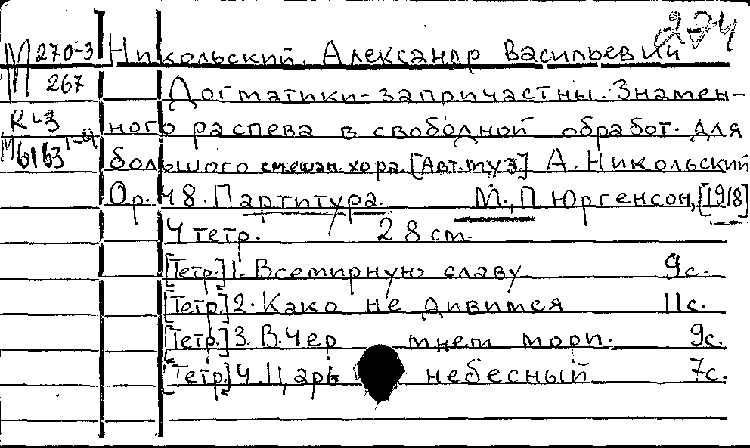 274
М 270-3 Никольский, Александр Васильевич
267 Догматики-запричастны. Знамен-
К-3 ного распева в свободной обработ. для
М 6163 1-4 большого смешан. хора. [Авт. муз] А. Никольский
Op. 48. Партитура. М., П. Юргенсон, [1918]
4 тетр. 28 cm
[Тетр.] 1. Всемирную славу 9 с.
[Тетр.] 2. Како не дивимся 11 с.
[Тетр.] 3. В. Чер мнем мори. 9 с.
[Тетр.] 4. Царь небесный 7 с.